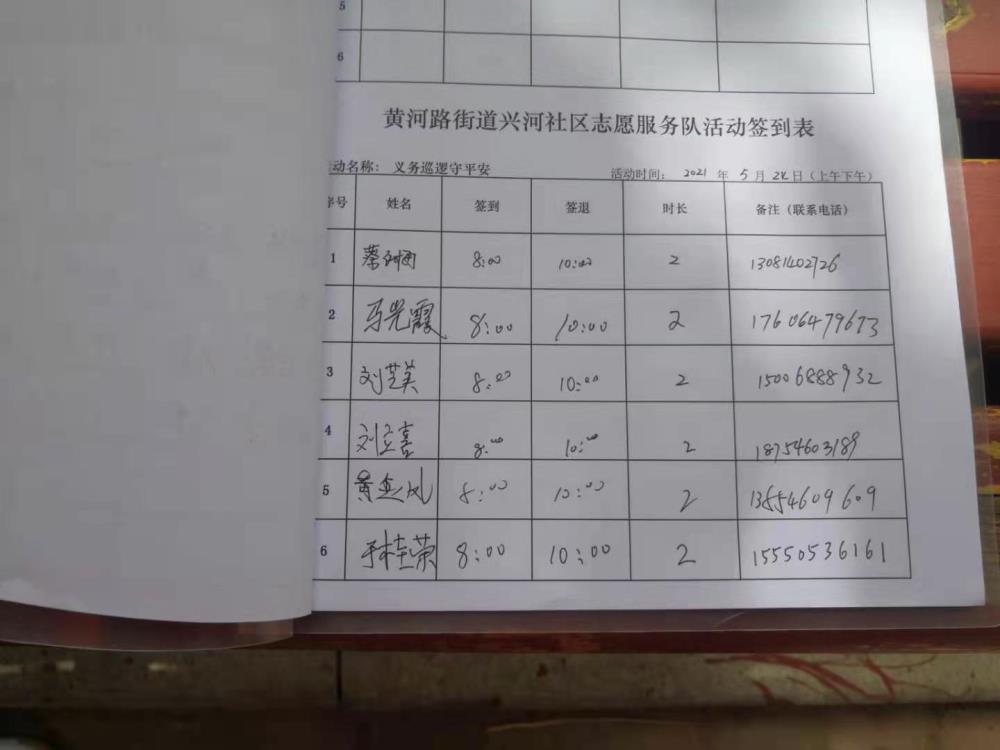 5
6
黄河路街道兴河社区志愿服务队活动签到表
动名称： 义务巡逻守平安 活动时间： 2021 年 5 月 24 日（上午下午）
序号 姓名 签到 签退 时长 备注（联系电话）
1 8:00 10:00 2 13081402726
2 马光霞 8:00 10:00 2 17606479673
3 刘芝美 8:00 10:00 2 15006888932
4 刘立喜 8:00 10:00 2 18754603189
5 黄金凤 8:00 10:00 2 13854609609
6 于桂荣 8:00 10:00 2 15550536161